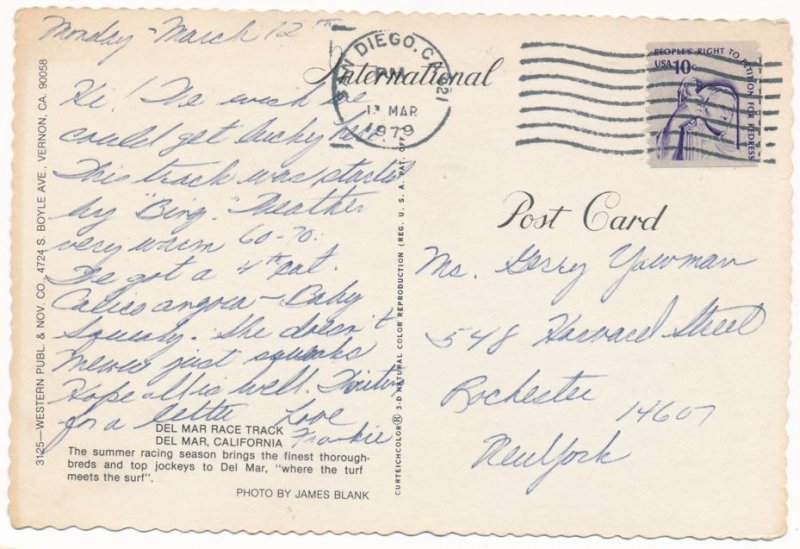 Monday - March 12th
Hi! We wish we
could get lucky here.
This track was started
by "Bing." Weather
very warm 60-70.
I've got a 4th cat.
Calico angora - Baby
Squeaky. She doesn't
meow just squeaks
Hope all is well. Waiting
for a letter Love
Frankie
DEL MAR RACE TRACK
DEL MAR, CALIFORNIA
The summer racing season brings the finest thorough-
breds and top jockeys to Del Mar, "where the turf
meets the surf".
PHOTO BY JAMES BLANK
3125—WESTERN PUBL. & NOV. CO., 4724 S. BOYLE AVE., VERNON, CA. 90058
CURTEICHCOLOR® 3-D NATURAL COLOR REPRODUCTION (REG. U. S. A. PAT. OFF.)
International
SAN DIEGO, CA 921
PM
13 MAR
1979
PEOPLE'S RIGHT TO PETITION FOR REDRESS
USA 10c
Post Card
Ms. Gerry Yawman
548 Harvard Street
Rochester 14607
New York